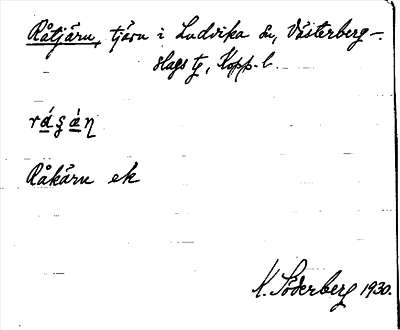 Råtjärn, tjärn i Ludvika sn, Västerberg-
slags tg, Kopp. l.
Råkärn ek
K. Söderberg 1930.